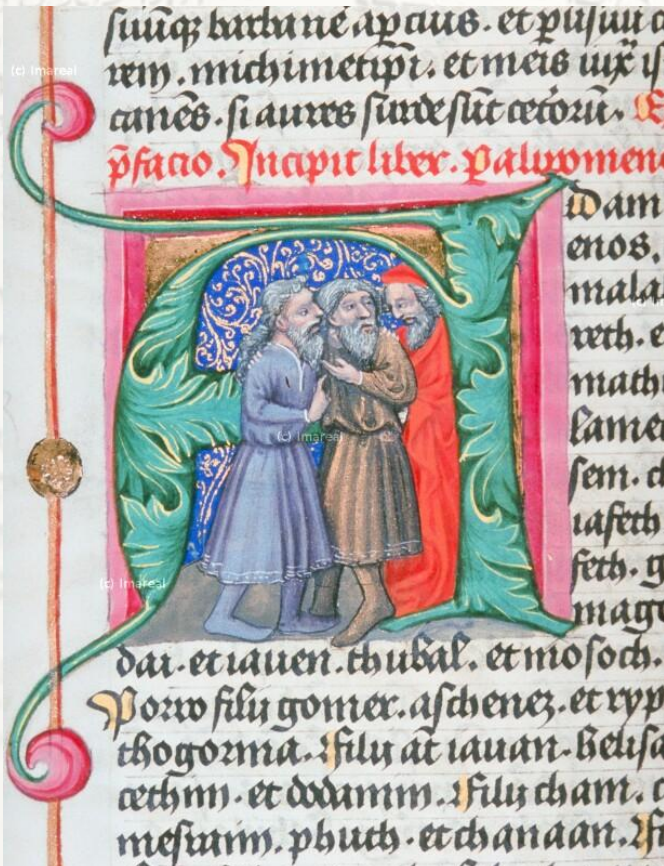 suisq barbane apcius. et plisuu c
rem. michimetipi. et meis uix is
canēs. si aures surde sūt cetorū. E
p̄facio. Incipit liber. Palipomen
Adam
enos.
mala
reth. e
math
lamec
sem. ch
iafeth
feth. g
mago
dai. et iauen. thubal. et mosoch.
Porro filij gomer. aschenez. et ryp
thogorma. Filij āt iauan. helisa
cethim. et dodanim. Filij cham. c
mesraim. phuth. et chanaan. Fi
(c) Imareal
(c) Imareal
(c) Imareal